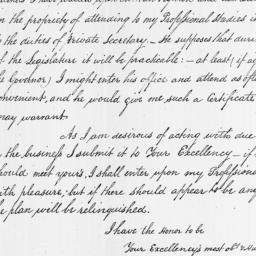 on the propriety of attending to my Professional Studies in
to the duties of private Secretary. – He supposes that duri
of the Legislature it will be practicable: – at least (if ag
the Governor) I might enter his office and attend as oft
convenient, and he would give me such a Certificate
may warrant.
As I am desirous of acting with due
in the business I submit it to Your Excellency – if
should meet yours, I shall enter upon my Professiona
with pleasure, – but if there should appear to be any
the plan will be relinquished.
I have the Honor to be
Your Excellency's most ob